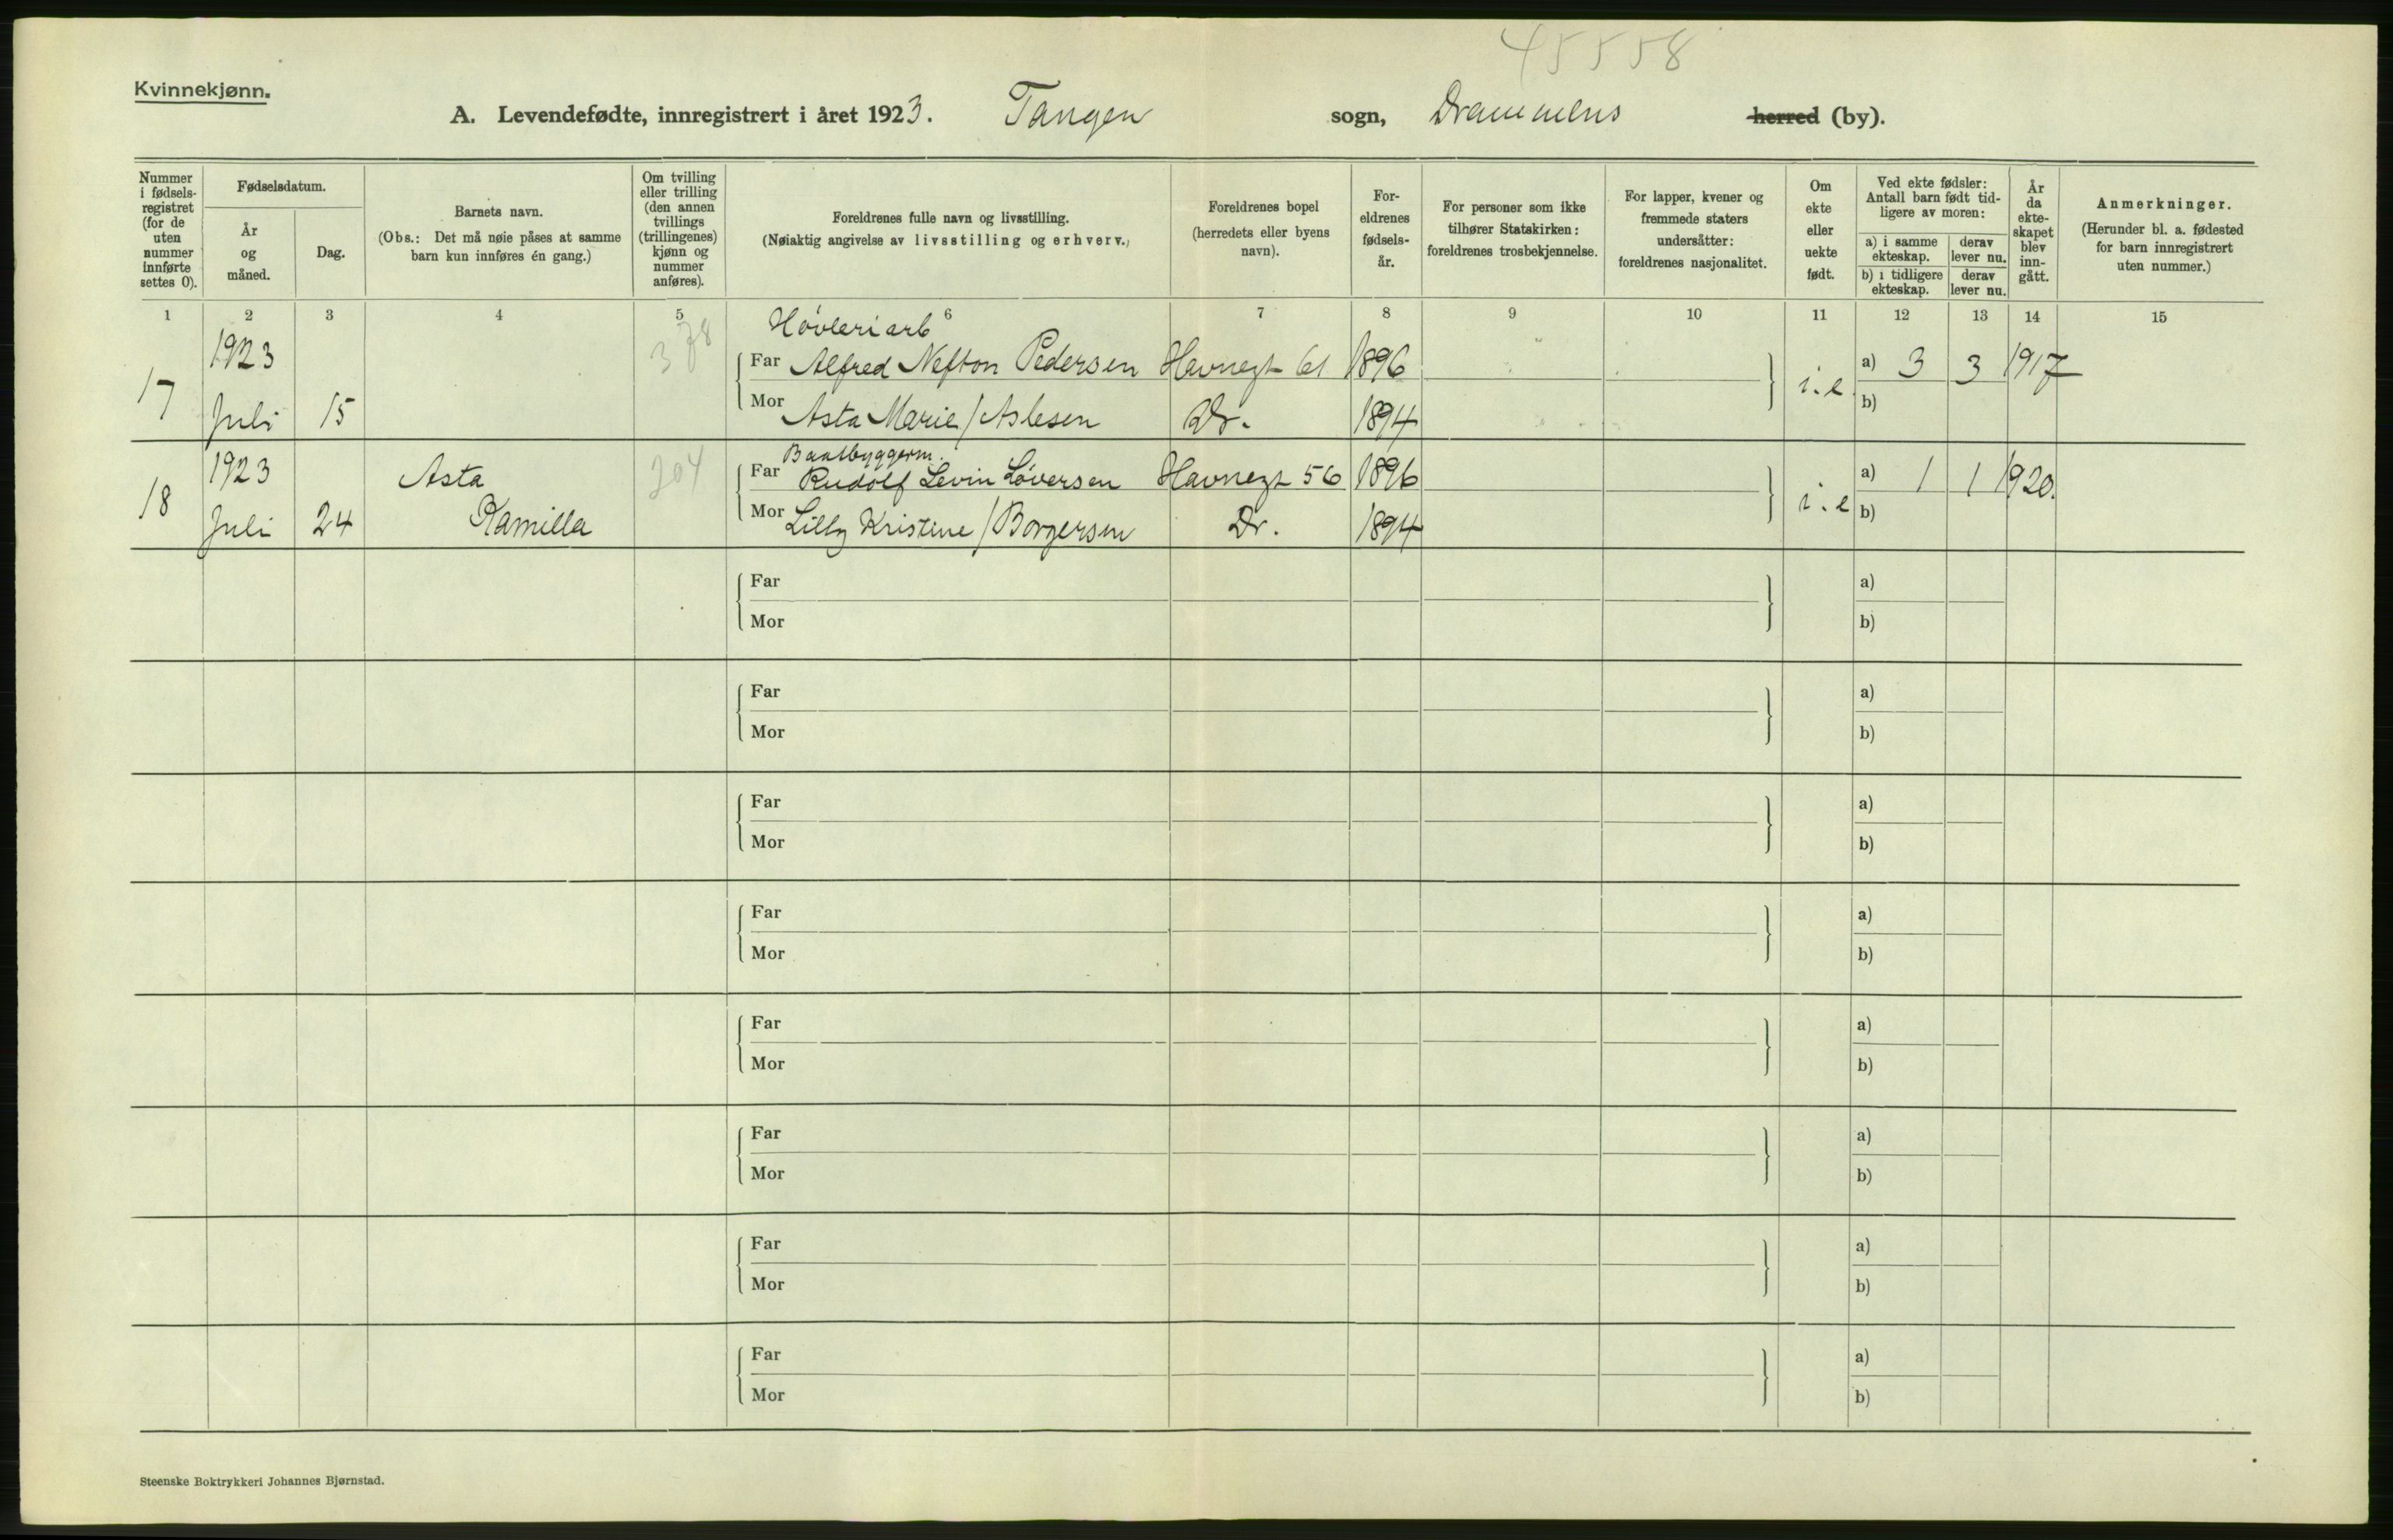 45558
Kvinnekjønn.
A. Levendefødte, innregistrert i året 1923. Tangen sogn, Drammens herred (by).
Nummer i fødsels-registret (for de uten nummer innførte settes 0).
Fødselsdatum.
År og måned.
Dag.
Barnets navn.
(Obs.: Det må nøie påses at samme barn kun innføres én gang.)
Om tvilling eller trilling (den annen tvillings (trillingenes) kjønn og nummer anføres).
Foreldrenes fulle navn og livsstilling.
(Nøiaktig angivelse av livsstilling og erhverv.)
Foreldrenes bopel (herredets eller byens navn).
For-eldrenes fødsels-år.
For personer som ikke tilhører Statskirken: foreldrenes trosbekjennelse.
For lapper, kvener og fremmede staters undersåtter: foreldrenes nasjonalitet.
Om ekte eller uekte født.
Ved ekte fødsler: Antall barn født tid-ligere av moren:
a) i samme ekteskap. derav lever nu.
b) i tidligere ekteskap. derav lever nu.
År da ekte-skapet blev inn-gått.
Anmerkninger.
(Herunder bl. a. fødested for barn innregistrert uten nummer.)
1 2 3 4 5 6 7 8 9 10 11 12 13 14 15
Høvleriarb
1923 378 Far Alfred Nefton Pedersen Havnegt 61 1896 a) 3 3 1917
17 i.e b)
Juli 15 Mor Asta Marie / Aslesen Dr. 1894
Baatbyggerm.
1923 Asta 204 Far Rudolf Levin Løversen Havnegt 56 1896 a) 1 1 1920.
18 i.e b)
Juli 24 Kamilla Mor Lilly Kristine / Borgersen Dr. 1894
Far a)
Mor b)
Far a)
Mor b)
Far a)
Mor b)
Far a)
Mor b)
Far a)
Mor b)
Far a)
Mor b)
Far a)
Mor b)
Far a)
Mor b)
Steenske Boktrykkeri Johannes Bjørnstad.